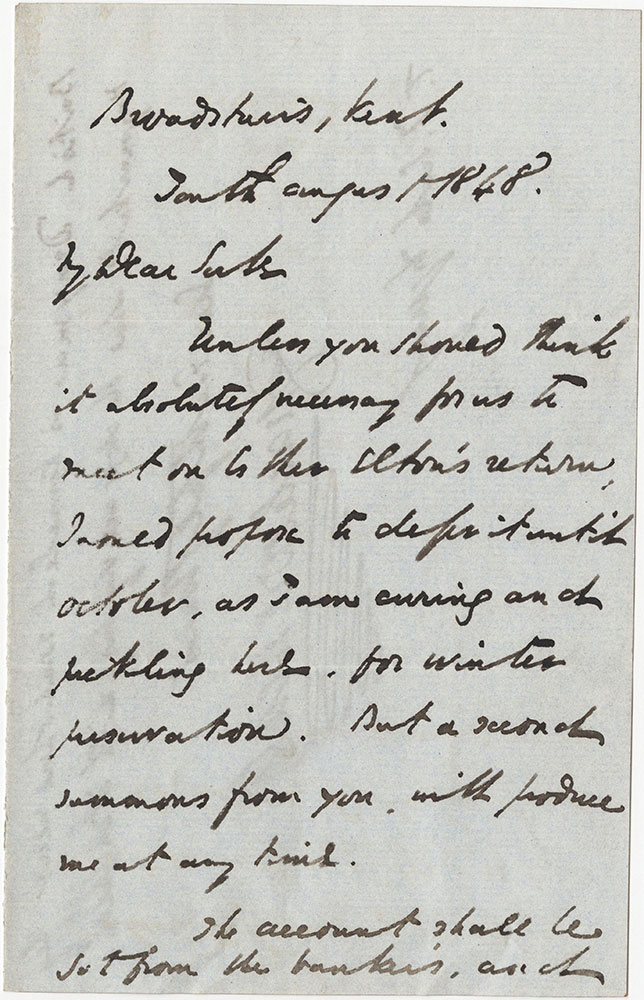 Broadstairs, Kent.
Tenth August 1848.
My Dear Serle
Unless you should think
it absolutely necessary for us to
meet on Esther Elton's return,
I would propose to defer it until
October, as I am curing and
pickling here, for winter
preservation. But a second
summons from you, will produce
me at any time.
The account shall be
got from the banker's, and